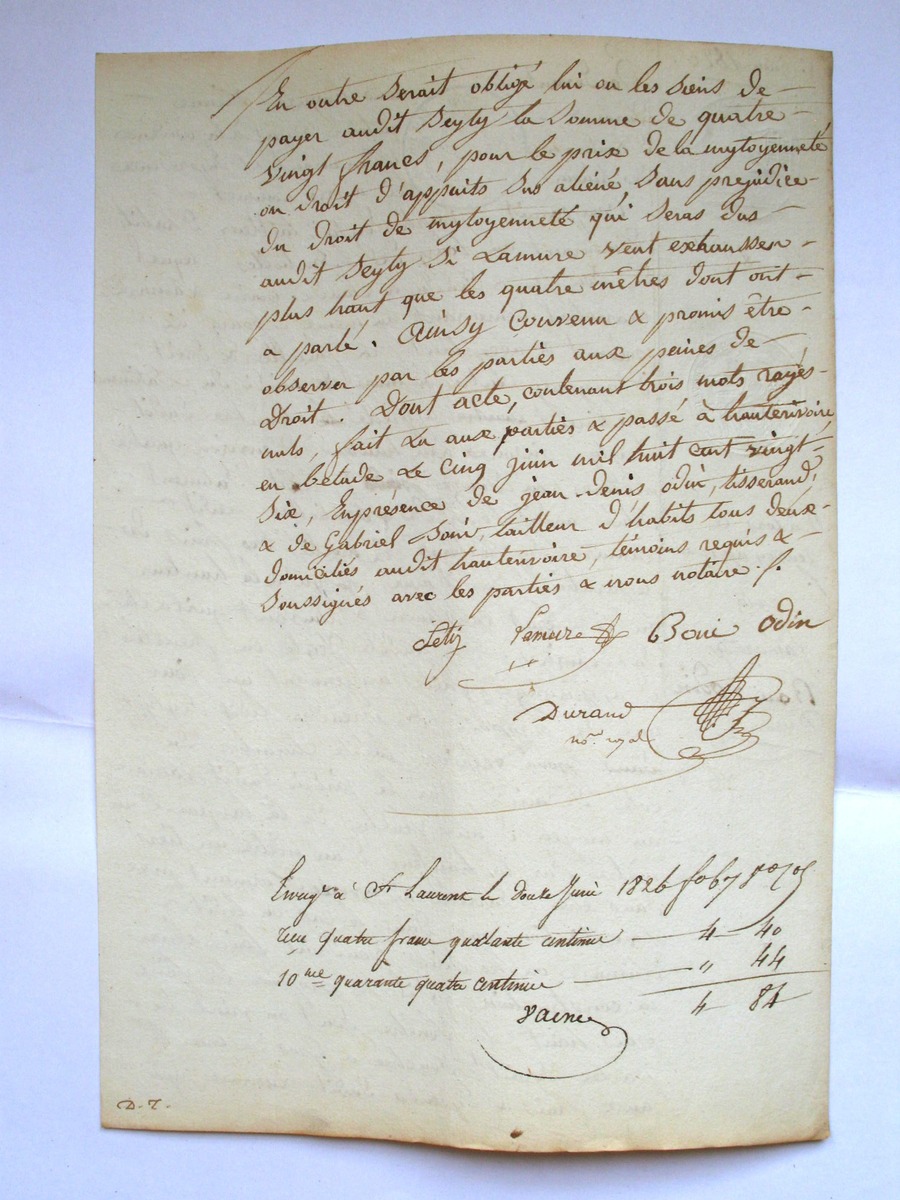 En outre serait obligé lui ou les siens de
payer audit Seyty la somme de quatre
vingt francs, pour le prix de la mytoyenneté
ou droit d'appuits sus aliéné, sans prejudice
du droit de mytoyenneté qui seras dus
audit Seyty si Lamure veut exhausser
plus haut que les quatre mètres dont ont
a parlé. Ainsy convenu & promis être
observer par les parties aux peines de
Droit. Dont acte, contenant trois mots rayés
nuls, fait Lu aux parties & passé à hauterivoire
en l'etude Le cinq juin mil huit cent vingt
six, En présence de jean-denis odin, tisserand,
& de Gabriel , tailleur d'habits tous deux
domiciliés audit hauterivoire, témoins requis &
soussignés avec les parties & nous notaire.
Setiy Lamure Boui Odin
Durand
nre. royal
Enregt. à St Laurent le douze Juin 1826 fo 67
reçu quatre franc quarante centime 4 40
10me quarante quatre centime " 44
4 84
D. T.